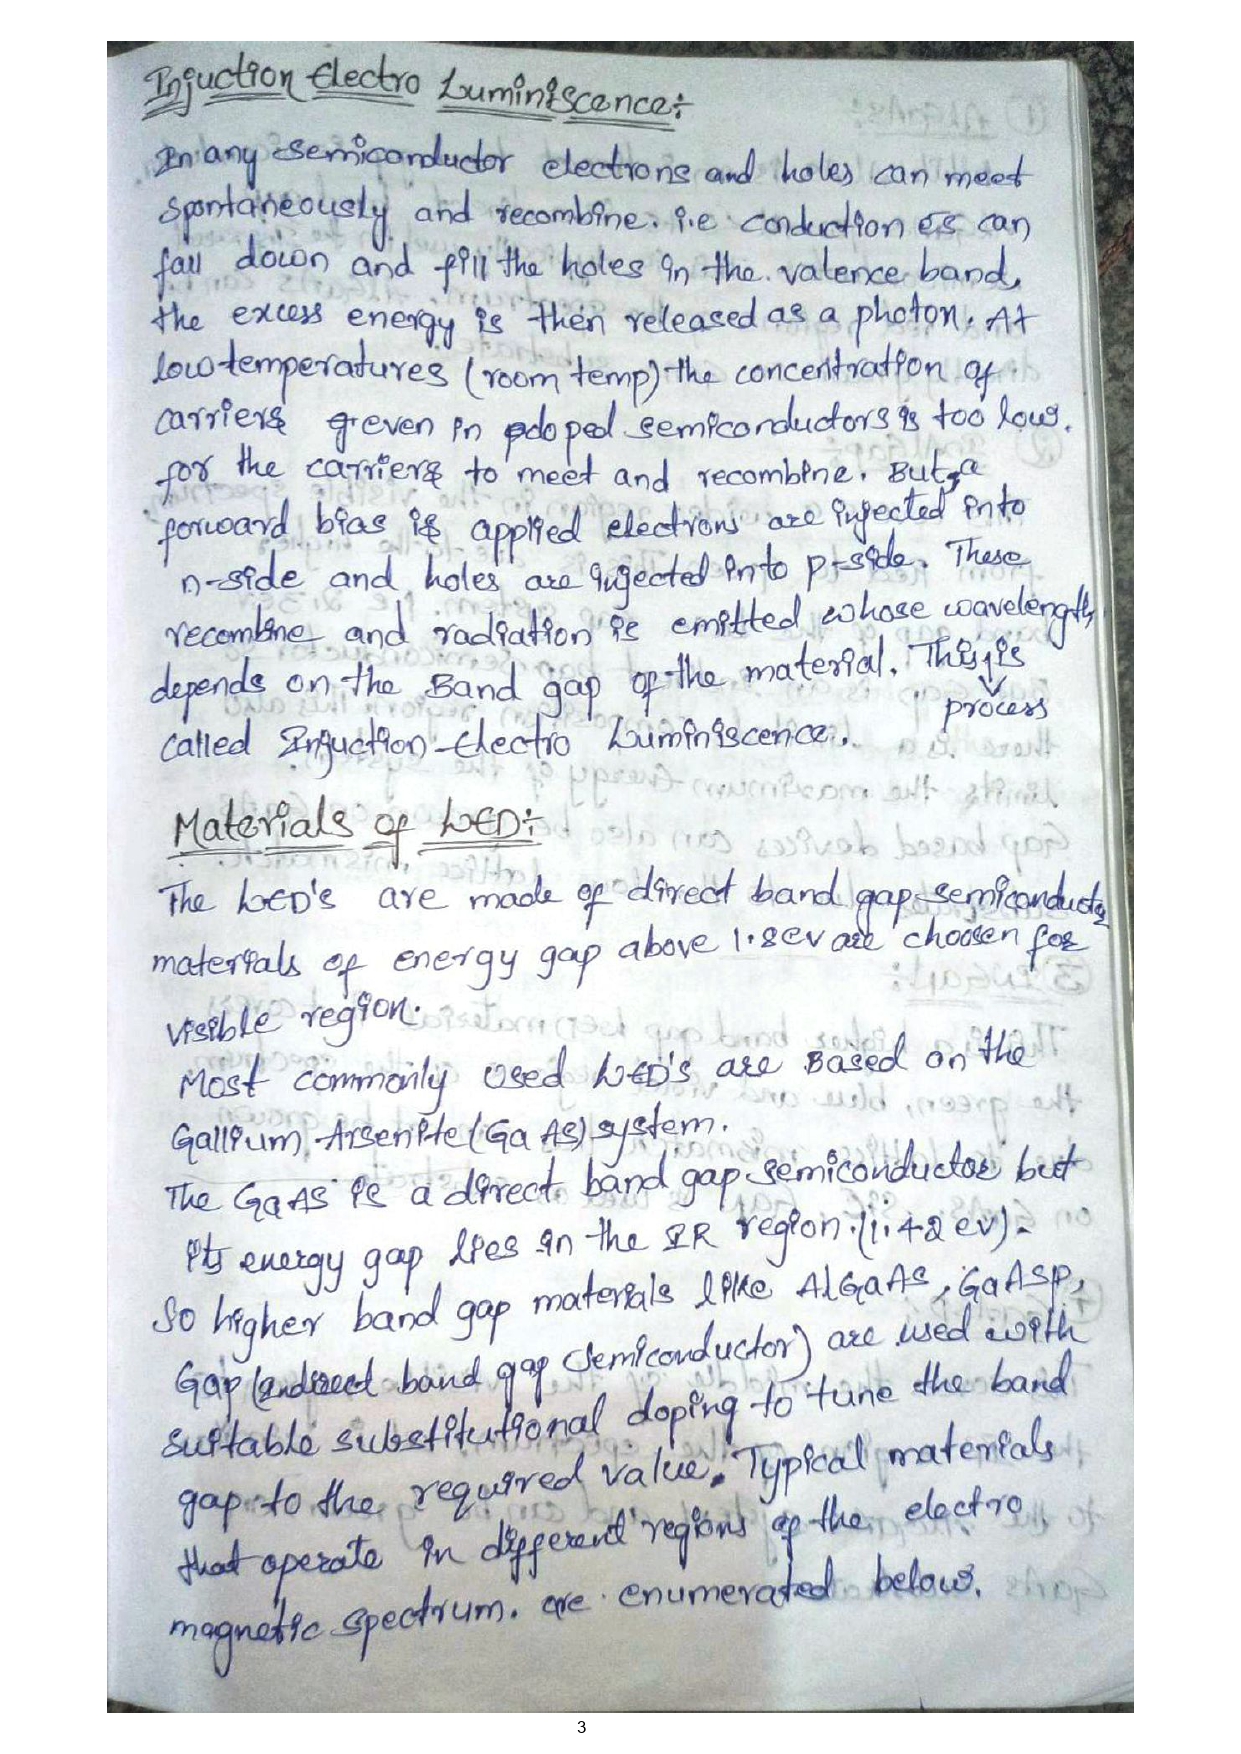 Injuction Electro Luminiscence:
In any semiconductor electrons and holes can meet
spontaneously and recombine. i.e conduction es can
fall down and fill the holes in the valence band,
the excess energy is then released as a photon. At
low temperatures (room temp) the concentration of
carriers even in doped semiconductors is too low.
for the carriers to meet and recombine. But, a
forward bias is applied electrons are injected into
n-side and holes are injected into p-side. These
recombine and radiation is emitted whose wavelength
depends on the Band gap of the material. This is
process
called Injuction-Electro Luminiscence.
Materials of LED:
The LED's are made of direct band gap semiconductor
materials of energy gap above 1.8ev are choosen for
visible region.
Most commonly used LED's are Based on the
Gallium Arsenite (GaAs) system.
The GaAs is a direct band gap semiconductor but
its energy gap lies in the IR region.(1.42 ev).
So higher band gap materials like AlGaAs, GaAsp,
Gap (indirect band gap semiconductor) are used with
suitable substitutional doping to tune the band
gap to the required value. Typical materials
that operate in different regions of the electro
magnetic spectrum. are enumerated below.
3